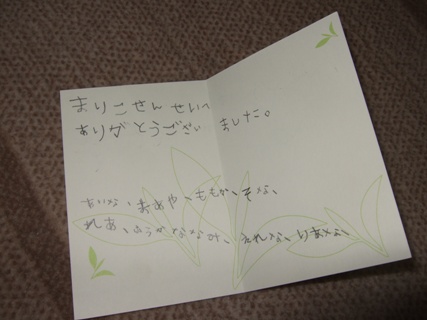 まりこせんせいへ
ありがとうございました。
あいな、まあや、ももか、そな、
れあ、ゆうか、ななみ、えれな、りあな、